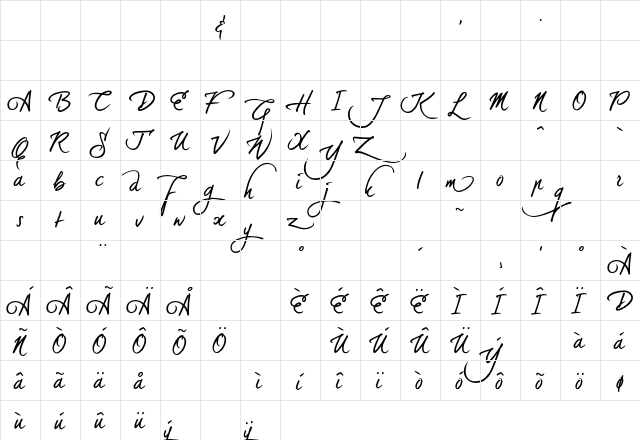 & ' ·
A B C D E F G H I J K L M N O P
Q R S T U V W X Y Z ^ `
a b c d f g h i j k l m o p q r
s t u v w x y z ~
¨ ° ´ ¸ ' ° À
Á Â Ã Ä Å È É Ê Ë Ì Í Î Ï D
Ñ Ò Ó Ô Õ Ö Ù Ú Û Ü Ý à á
â ã ä å ì í î ï ò ó ô õ ö ø
ù ú û ü ý ÿ